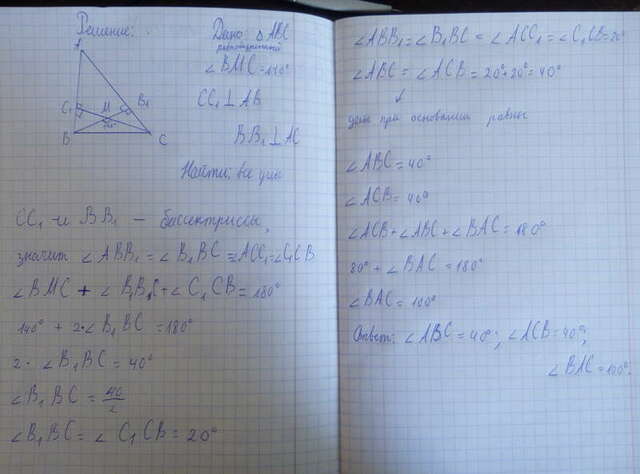 Решение:
A
C₁ M B₁
140°
B C
Дано △ABC
равнобедренный
∠BMC=140°
CC₁⊥AB
BB₁⊥AC
Найти: все углы
CC₁ и BB₁ – биссектриссы,
значит ∠ABB₁=∠B₁BC=∠ACC₁=∠C₁CB
∠BMC+∠B₁BC+∠C₁CB=180°
140°+2·∠B₁BC=180°
2·∠B₁BC=40°
∠B₁BC=40/2
∠B₁BC=∠C₁CB=20°
∠ABB₁=∠B₁BC=∠ACC₁=∠C₁CB=20°
∠ABC=∠ACB=20°+20°=40°
↓
углы при основании равны
∠ABC=40°
∠ACB=40°
∠ACB+∠ABC+∠BAC=180°
80°+∠BAC=180°
∠BAC=100°
Ответ: ∠ABC=40°; ∠ACB=40°;
∠BAC=100°.